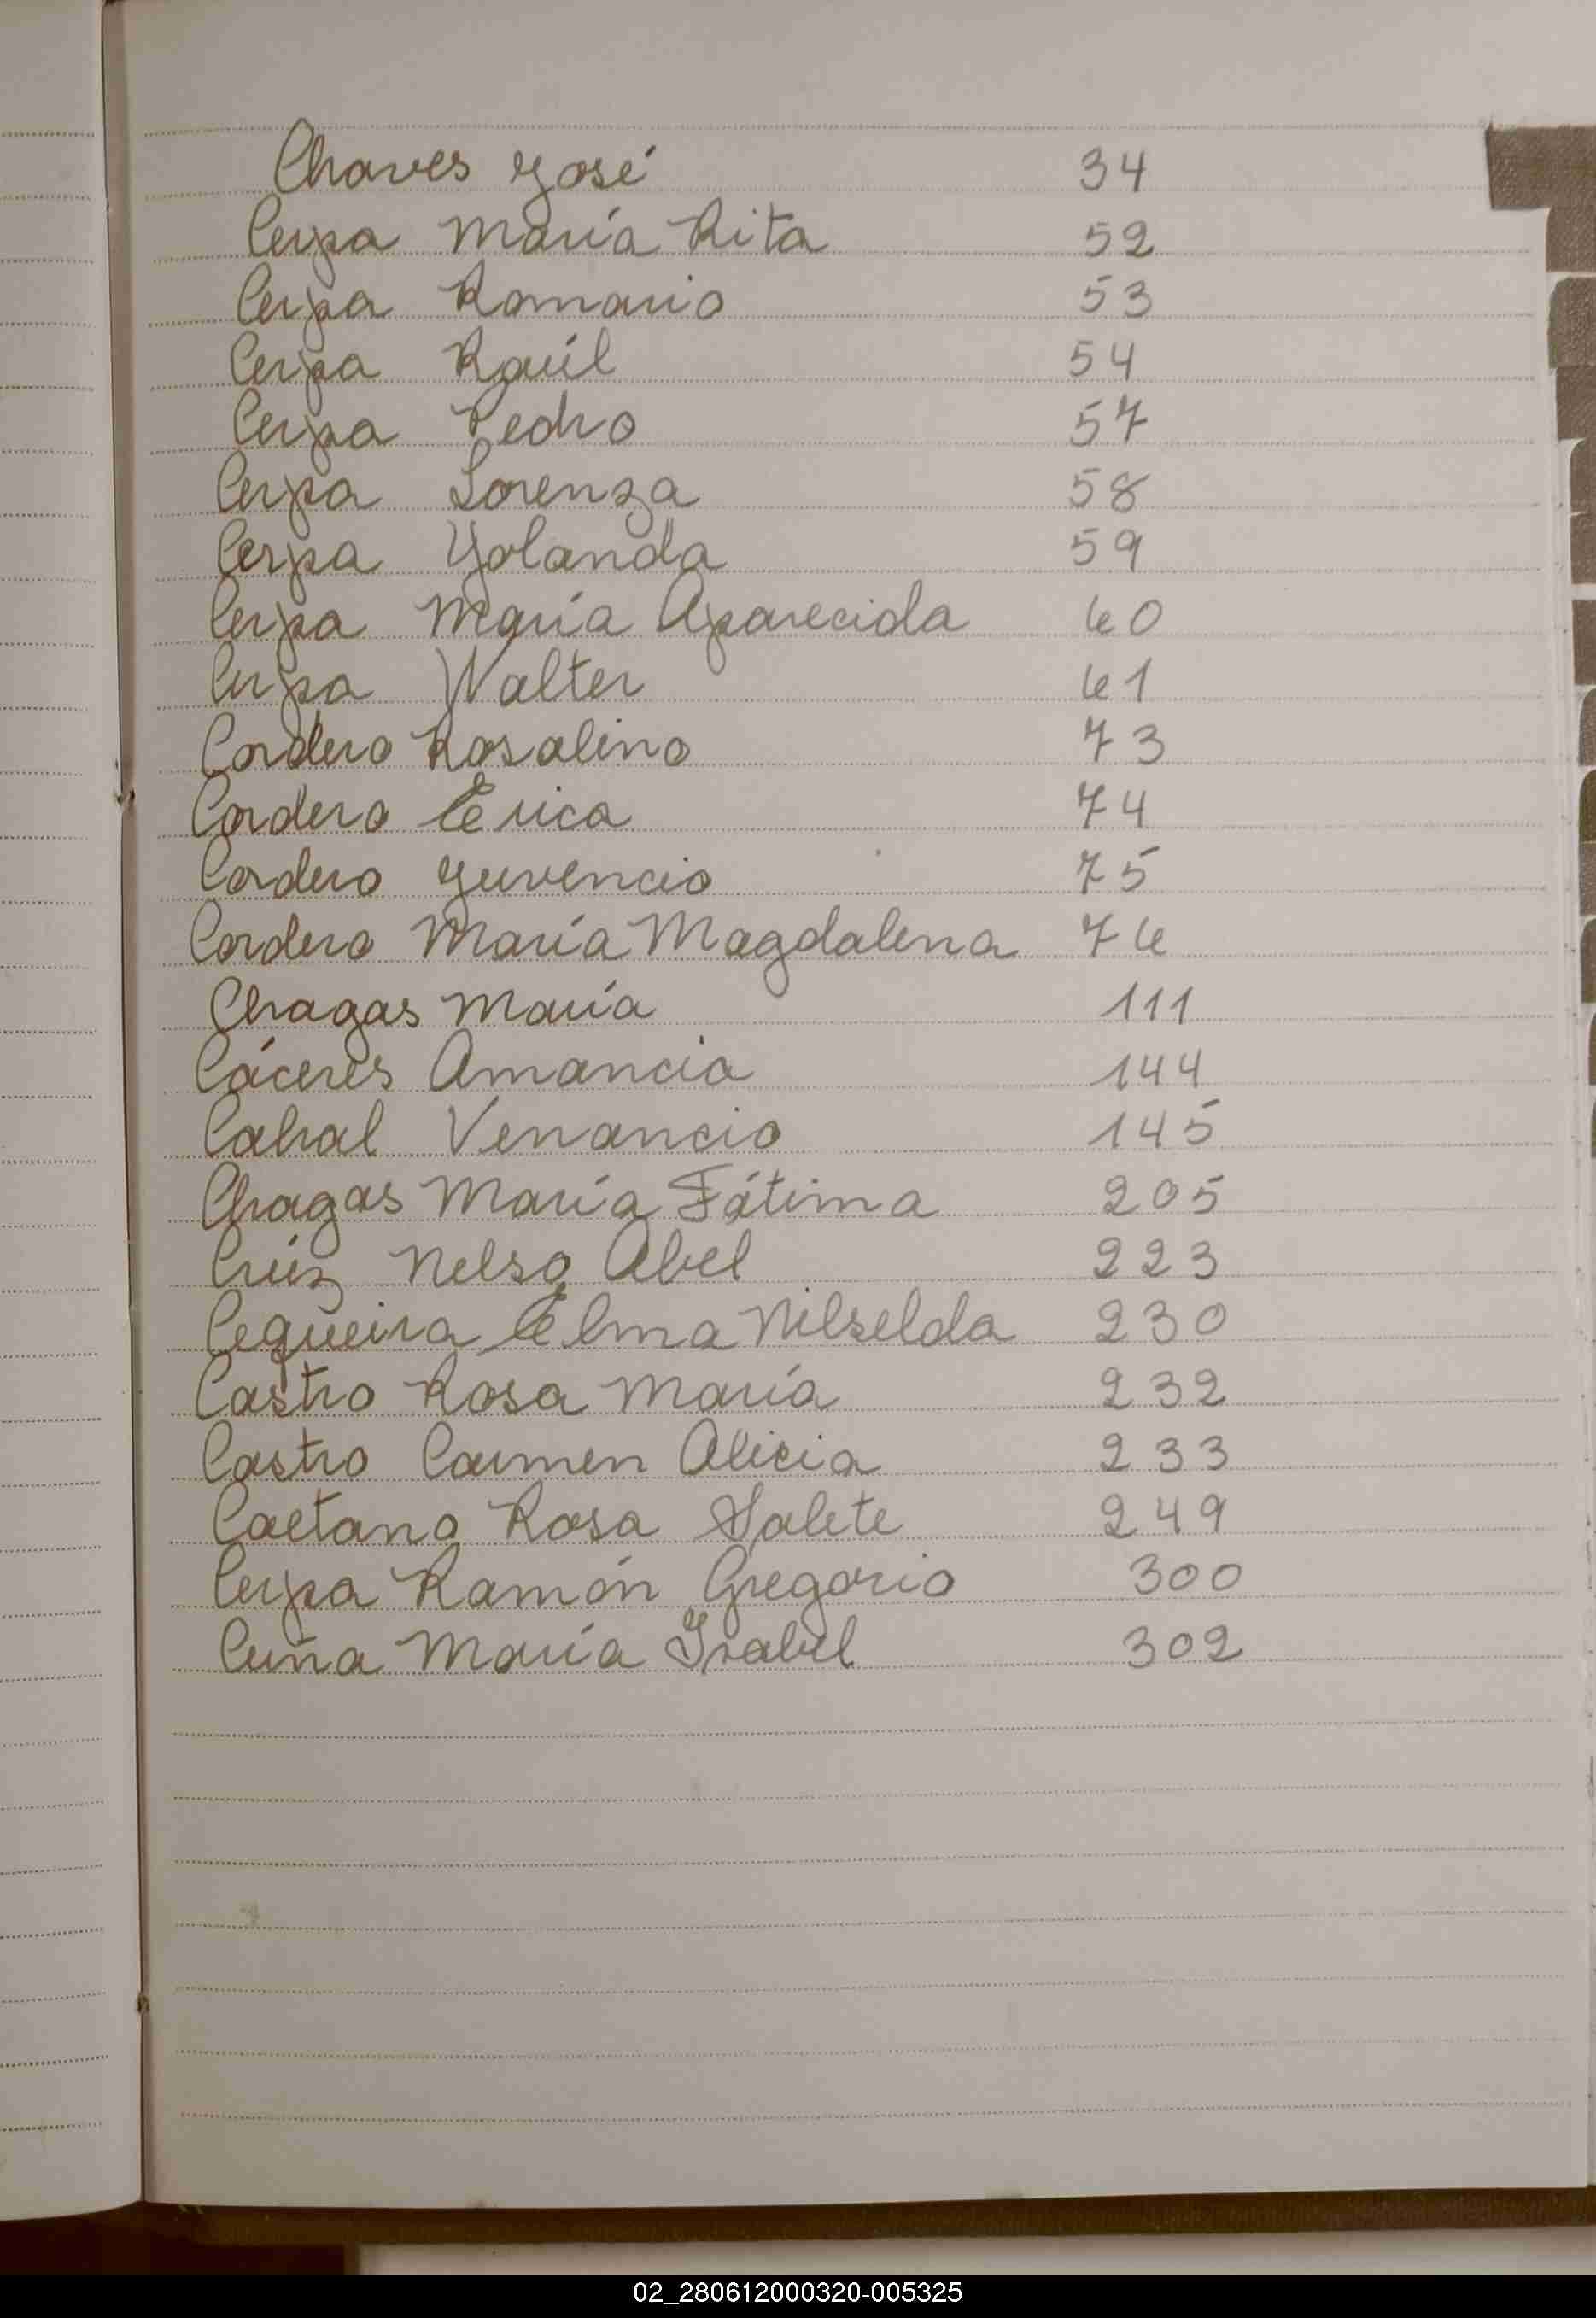 Chaves José 34
Cerpa María Rita 52
Cerpa Romario 53
Cerpa Raúl 54
Cerpa Pedro 57
Cerpa Lorenza 58
Cerpa Yolanda 59
Cerpa María Aparecida 60
Cerpa Walter 61
Cordero Rosalino 73
Cordero Erica 74
Cordero Juvencio 75
Cordero María Magdalena 76
Chagas María 111
Cáceres Amancia 144
Cabral Venancio 145
Chagas María Fátima 205
Crúz Nelso Abel 223
Cequeira Elma Nilselda 230
Castro Rosa María 232
Castro Carmen Alicia 233
Caetano Rosa Salete 249
Cerpa Ramón Gregorio 300
Cuña María Isabel 302
02_280612000320-005325